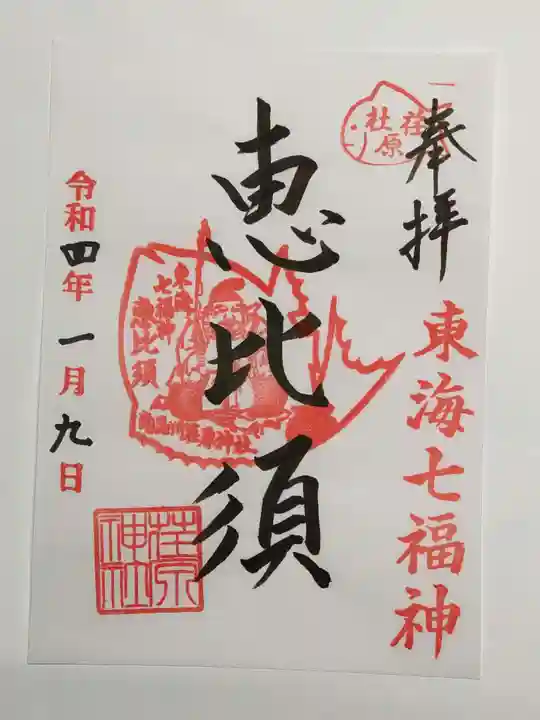 奉拝
荏原
社
東海七福神
恵比須
東海
七福神
恵比須
南品川荏原神社
令和四年一月九日
荏原
神社